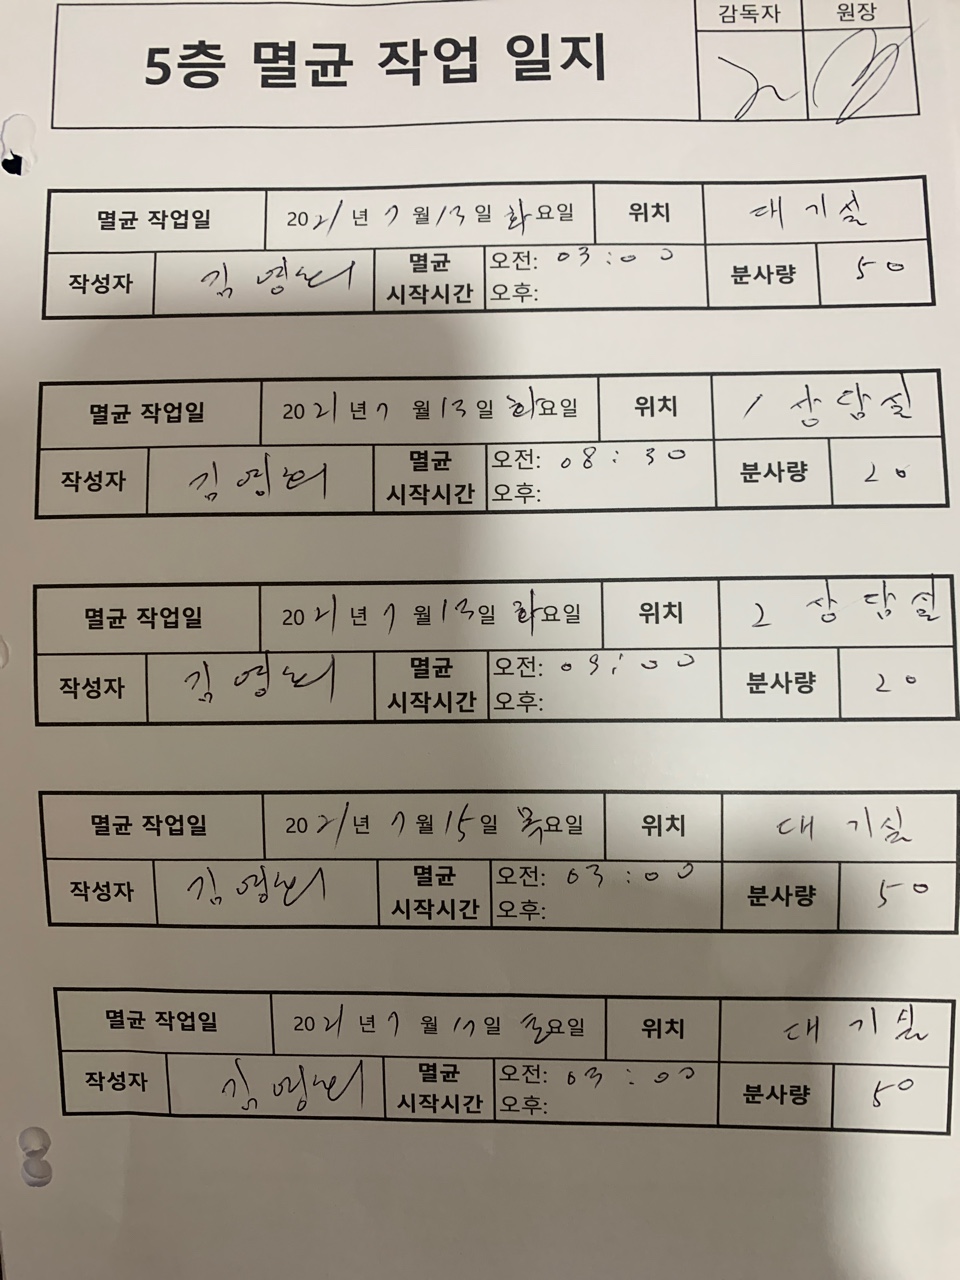 감독자 원장
5층 멸균 작업 일지
멸균 작업일 2021년 7월 13일 화요일 위치 대기실
작성자 김영희 멸균 시작시간 오전: 03:00 오후: 분사량 50
멸균 작업일 2021년 7월 13일 화요일 위치 1 상담실
작성자 김영희 멸균 시작시간 오전: 08:30 오후: 분사량 20
멸균 작업일 2021년 7월 13일 화요일 위치 2 상담실
작성자 김영희 멸균 시작시간 오전: 09:00 오후: 분사량 20
멸균 작업일 2021년 7월 15일 목요일 위치 대기실
작성자 김영희 멸균 시작시간 오전: 03:00 오후: 분사량 50
멸균 작업일 2021년 7월 17일 요일 위치 대기실
작성자 김영희 멸균 시작시간 오전: 03:00 오후: 분사량 50